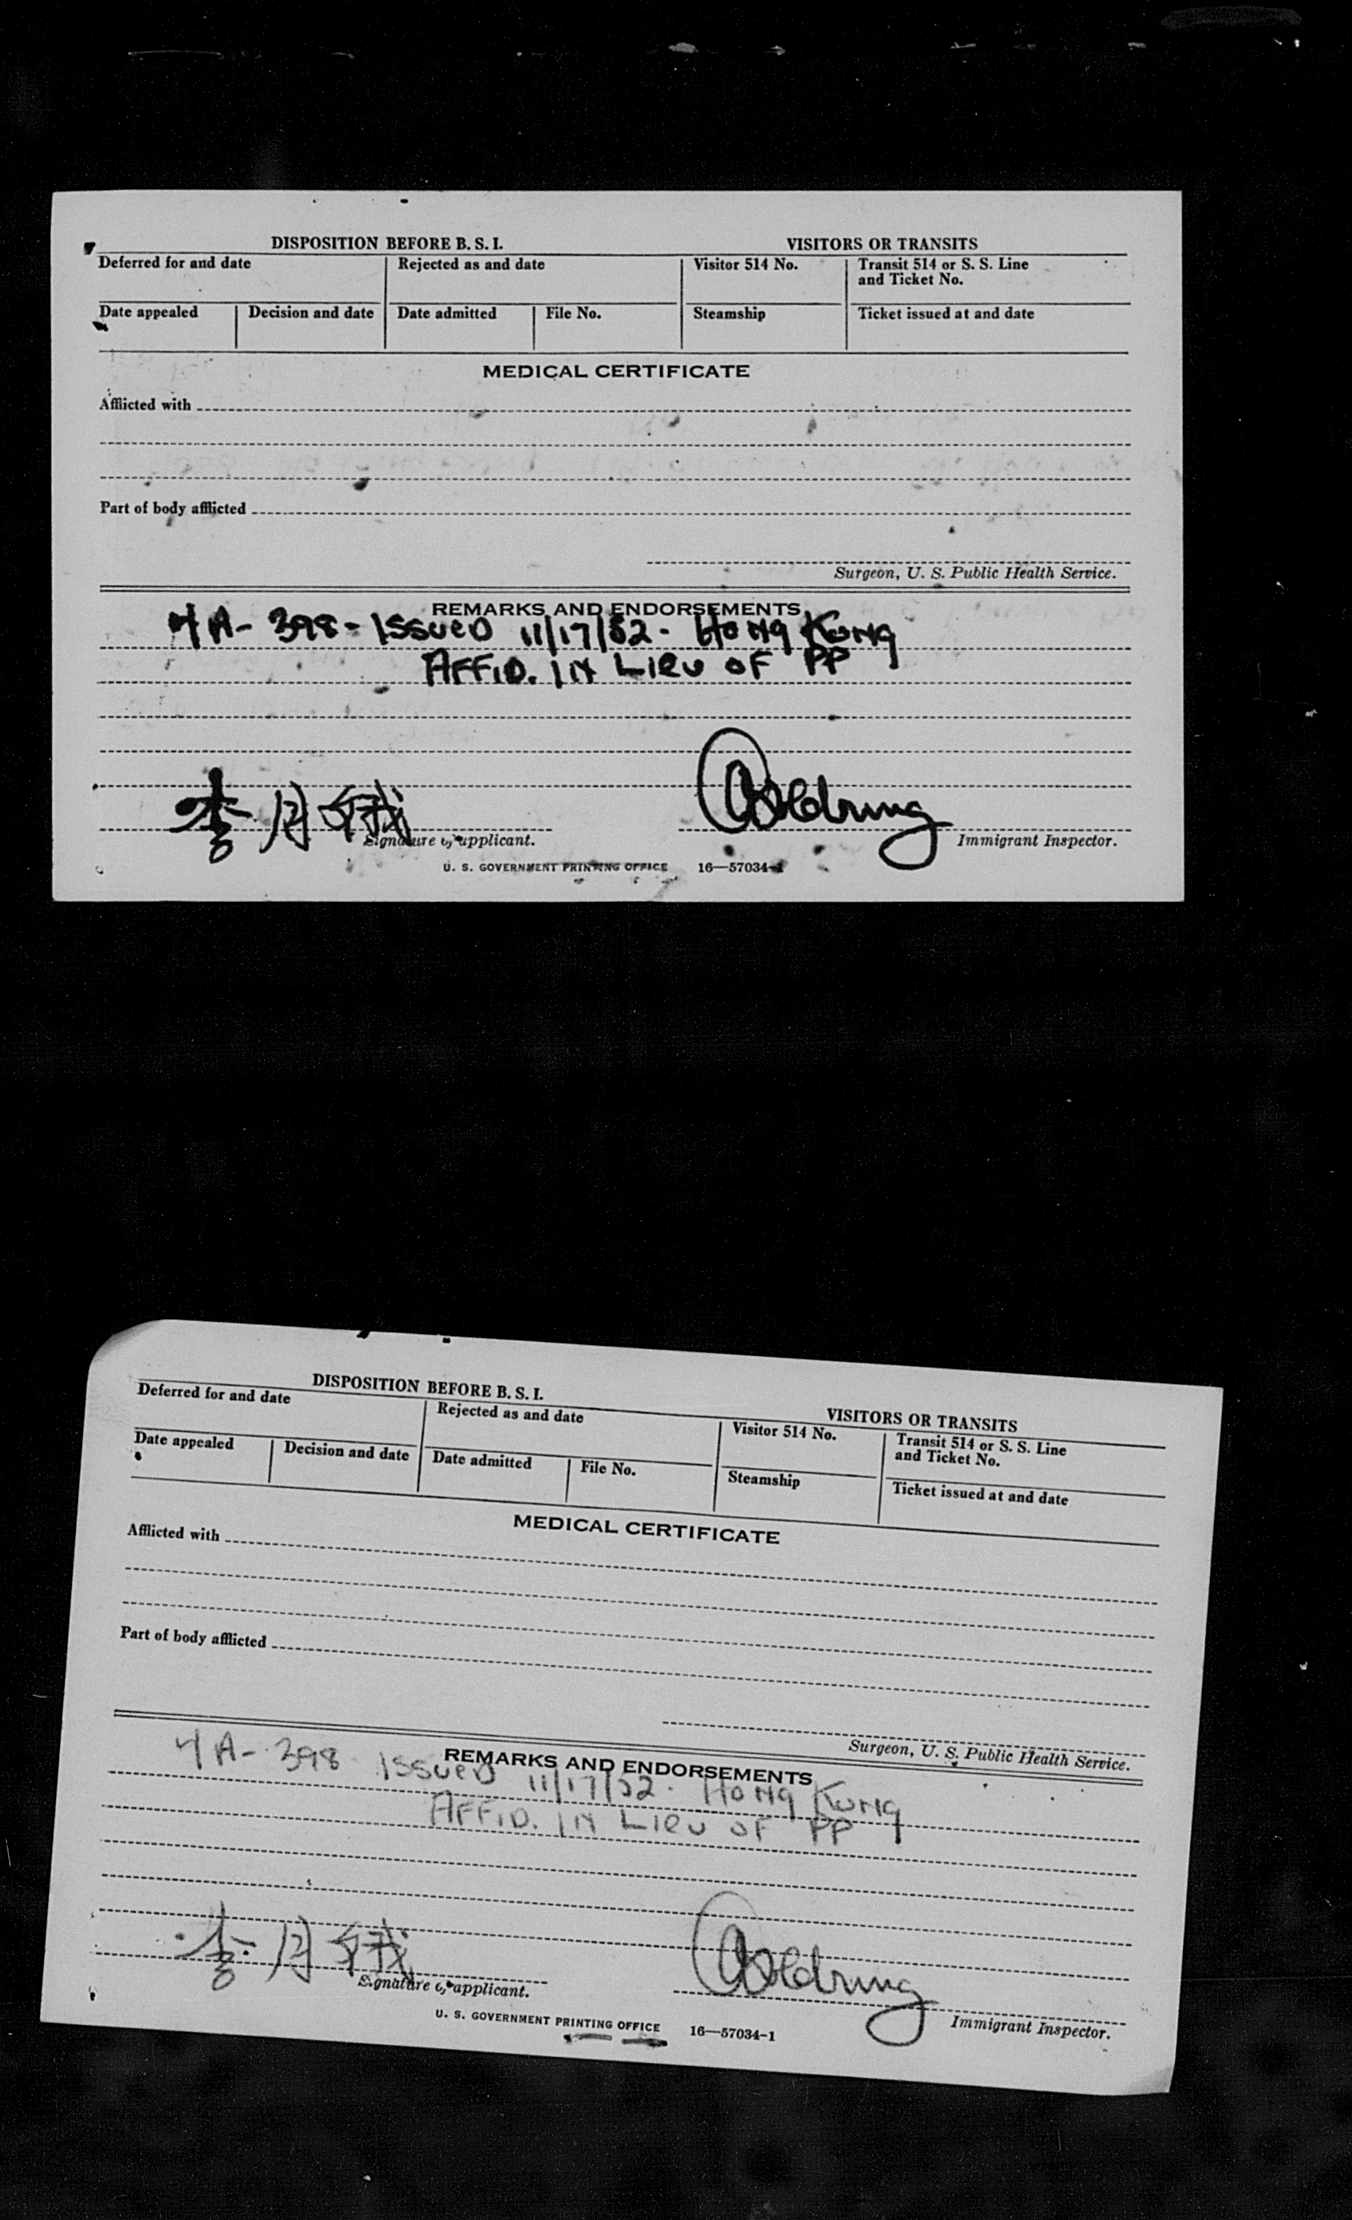 DISPOSITION BEFORE B. S. I.
VISITORS OR TRANSITS
Deferred for and date
Rejected as and date
Visitor 514 No.
Transit 514 or S. S. Line
and Ticket No.
Date appealed
Decision and date
Date admitted
File No.
Steamship
Ticket issued at and date
MEDICAL CERTIFICATE
Afflicted with
Part of body afflicted
Surgeon, U. S. Public Health Service.
REMARKS AND ENDORSEMENTS
4A-398-ISSUED 11/17/52. HONG KONG
AFFID. IN LIEU OF PP
李月
Signature of applicant.
Immigrant Inspector.
U. S. GOVERNMENT PRINTING OFFICE 16—57034-1
DISPOSITION BEFORE B. S. I.
VISITORS OR TRANSITS
Deferred for and date
Rejected as and date
Visitor 514 No.
Transit 514 or S. S. Line
and Ticket No.
Date appealed
Decision and date
Date admitted
File No.
Steamship
Ticket issued at and date
MEDICAL CERTIFICATE
Afflicted with
Part of body afflicted
Surgeon, U. S. Public Health Service.
REMARKS AND ENDORSEMENTS
4A-398 ISSUED 11/17/52. HONG KONG
AFFID. IN LIEU OF PP
李月
Signature of applicant.
Immigrant Inspector.
U. S. GOVERNMENT PRINTING OFFICE 16—57034-1